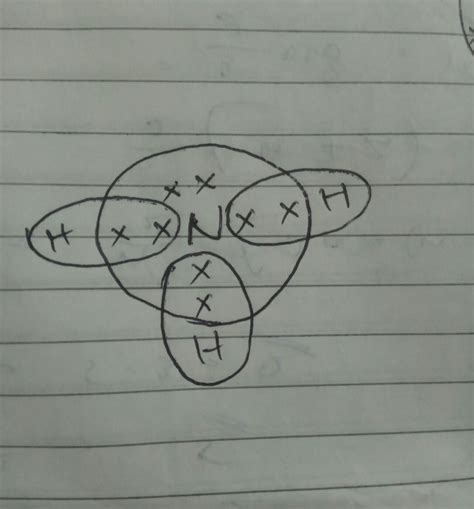 x x
H x x N x x H
x
x
H